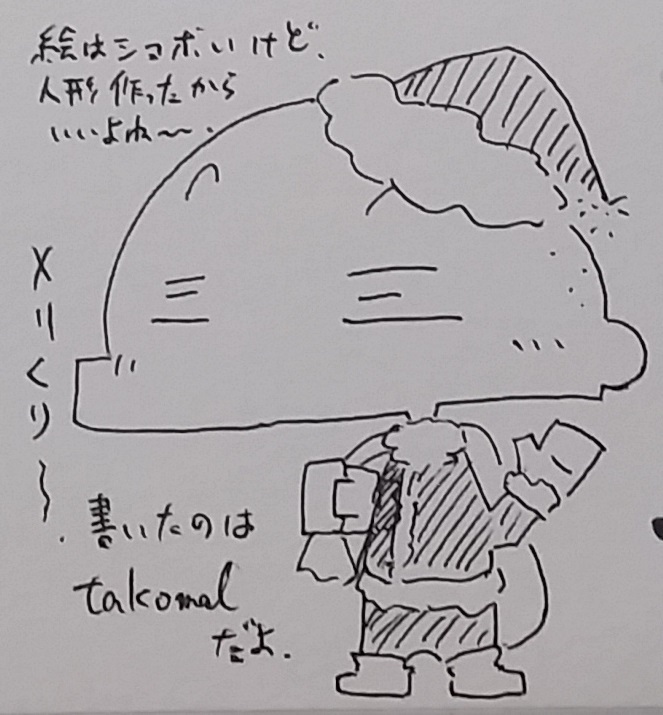 絵はショボいけど、
人形作ったから
いいよね〜.
メリくり〜.
書いたのは
takomal
だよ.